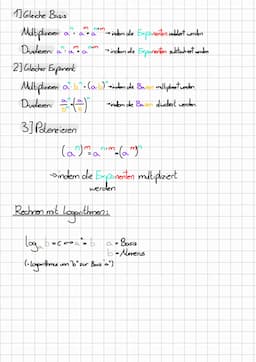 1] Gleiche Basis
Multiplizieren: aⁿ · aᵐ = aⁿ⁺ᵐ → indem die Exponenten addiert werden
Dividieren: aⁿ : aᵐ = aⁿ⁻ᵐ → indem die Exponenten subtrahiert werden
2] Gleicher Exponent
Multiplizieren: aⁿ · bⁿ = (a·b)ⁿ → indem die Basen multipliziert werden
Dividieren: aⁿ/bⁿ = (a/b)ⁿ → indem die Basen dividiert werden
3] Potenzieren
(aⁿ)ᵐ = aⁿ·ᵐ = (aᵐ)ⁿ
→ indem die Exponenten multipliziert
werden
Rechnen mit Logarithmen:
logₐ b = c ↔ aᶜ = b a = Basis
b = Numerus
(= Logarithmus von "b" zur Basis "a")